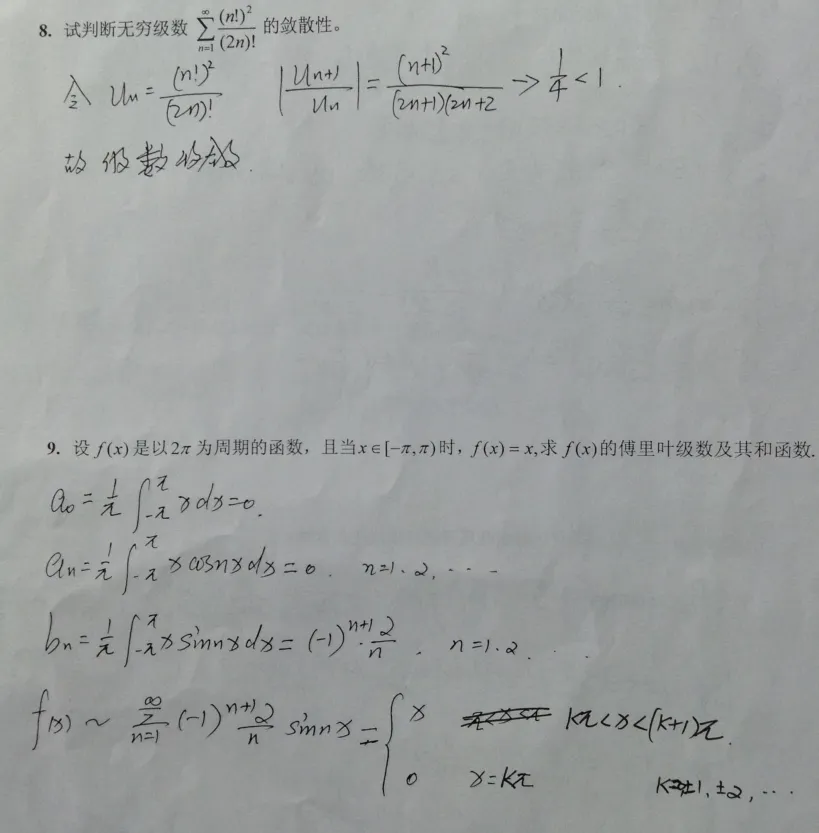 8. 试判断无穷级数 $\sum_{n=1}^{\infty}\frac{(n!)^2}{(2n)!}$ 的敛散性。
令 $U_n=\frac{(n!)^2}{(2n)!}$ $\left|\frac{U_{n+1}}{U_n}\right|=\frac{(n+1)^2}{(2n+1)(2n+2}\to\frac{1}{4}<1.$
故 级数收敛.
9. 设 $f(x)$ 是以 $2\pi$ 为周期的函数，且当 $x\in[-\pi,\pi)$ 时，$f(x)=x$,求 $f(x)$ 的傅里叶级数及其和函数.
$a_0=\frac{1}{\pi}\int_{-\pi}^{\pi}xdx=0.$
$a_n=\frac{1}{\pi}\int_{-\pi}^{\pi}x\cos nxdx=0.$ $n=1.2,\cdots$
$b_n=\frac{1}{\pi}\int_{-\pi}^{\pi}x\sin nxdx=(-1)^{n+1}\cdot\frac{2}{n}.$ $n=1.2...$
$f(x)\sim\sum_{n=1}^{\infty}(-1)^{n+1}\frac{2}{n}\sin nx=\begin{cases}x & k\pi<x<(k+1)\pi.\\0 & x=k\pi\end{cases}$ $k=\pm1,\pm2,\cdots$